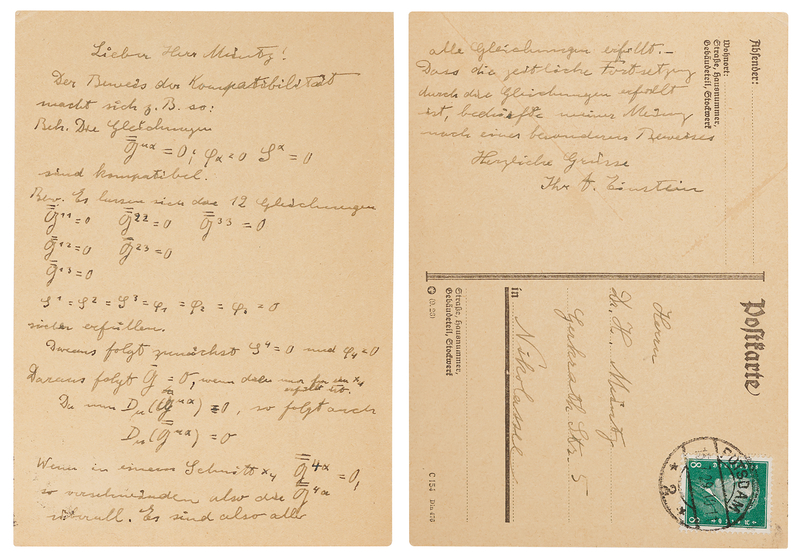 Lieber Herr Müntz!
Der Beweis der Kompatibilität
macht sich z. B. so:
Beh. Die Gleichungen
G̿^{μα} = 0; φ_α = 0 S^α = 0
sind kompatibel.
Bew. Es lassen sich die 12 Gleichungen
G̿^{11} = 0 G̿^{22} = 0 G̿^{33} = 0
G̿^{12} = 0 G̿^{23} = 0
G̿^{13} = 0
S^1 = S^2 = S^3 = φ_1 = φ_2 = φ_3 = 0
sicher erfüllen.
Daraus folgt zunächst S^4 = 0 und φ_4 = 0
Daraus folgt G̅ = 0, wenn dies nur für ein x_4
erfüllt ist.
Da nun D_μ(G̿^{μα}) = 0, so folgt auch
D_μ(G̿^{μα}) = 0
Wenn in einem Schnitt x_4 G̿^{4α} = 0,
so verschwinden also die G̿^{4α}
überall. Es sind also alle
alle Gleichungen erfüllt. –
Dass die zeitliche Fortsetzung
durch die Gleichungen erfüllt
ist, bedürfte meiner Meinung
nach eines besonderen Beweises
Herzliche Grüsse
Ihr A. Einstein
Absender:
Wohnort:
Straße, Hausnummer,
Gebäudeteil, Stockwerk
Postkarte
Herrn
Dr. H. Müntz
Str. 5
in Nikolassee
Straße, Hausnummer,
Gebäudeteil, Stockwerk
C 154 Din 476
POTSDAM
2
8
8